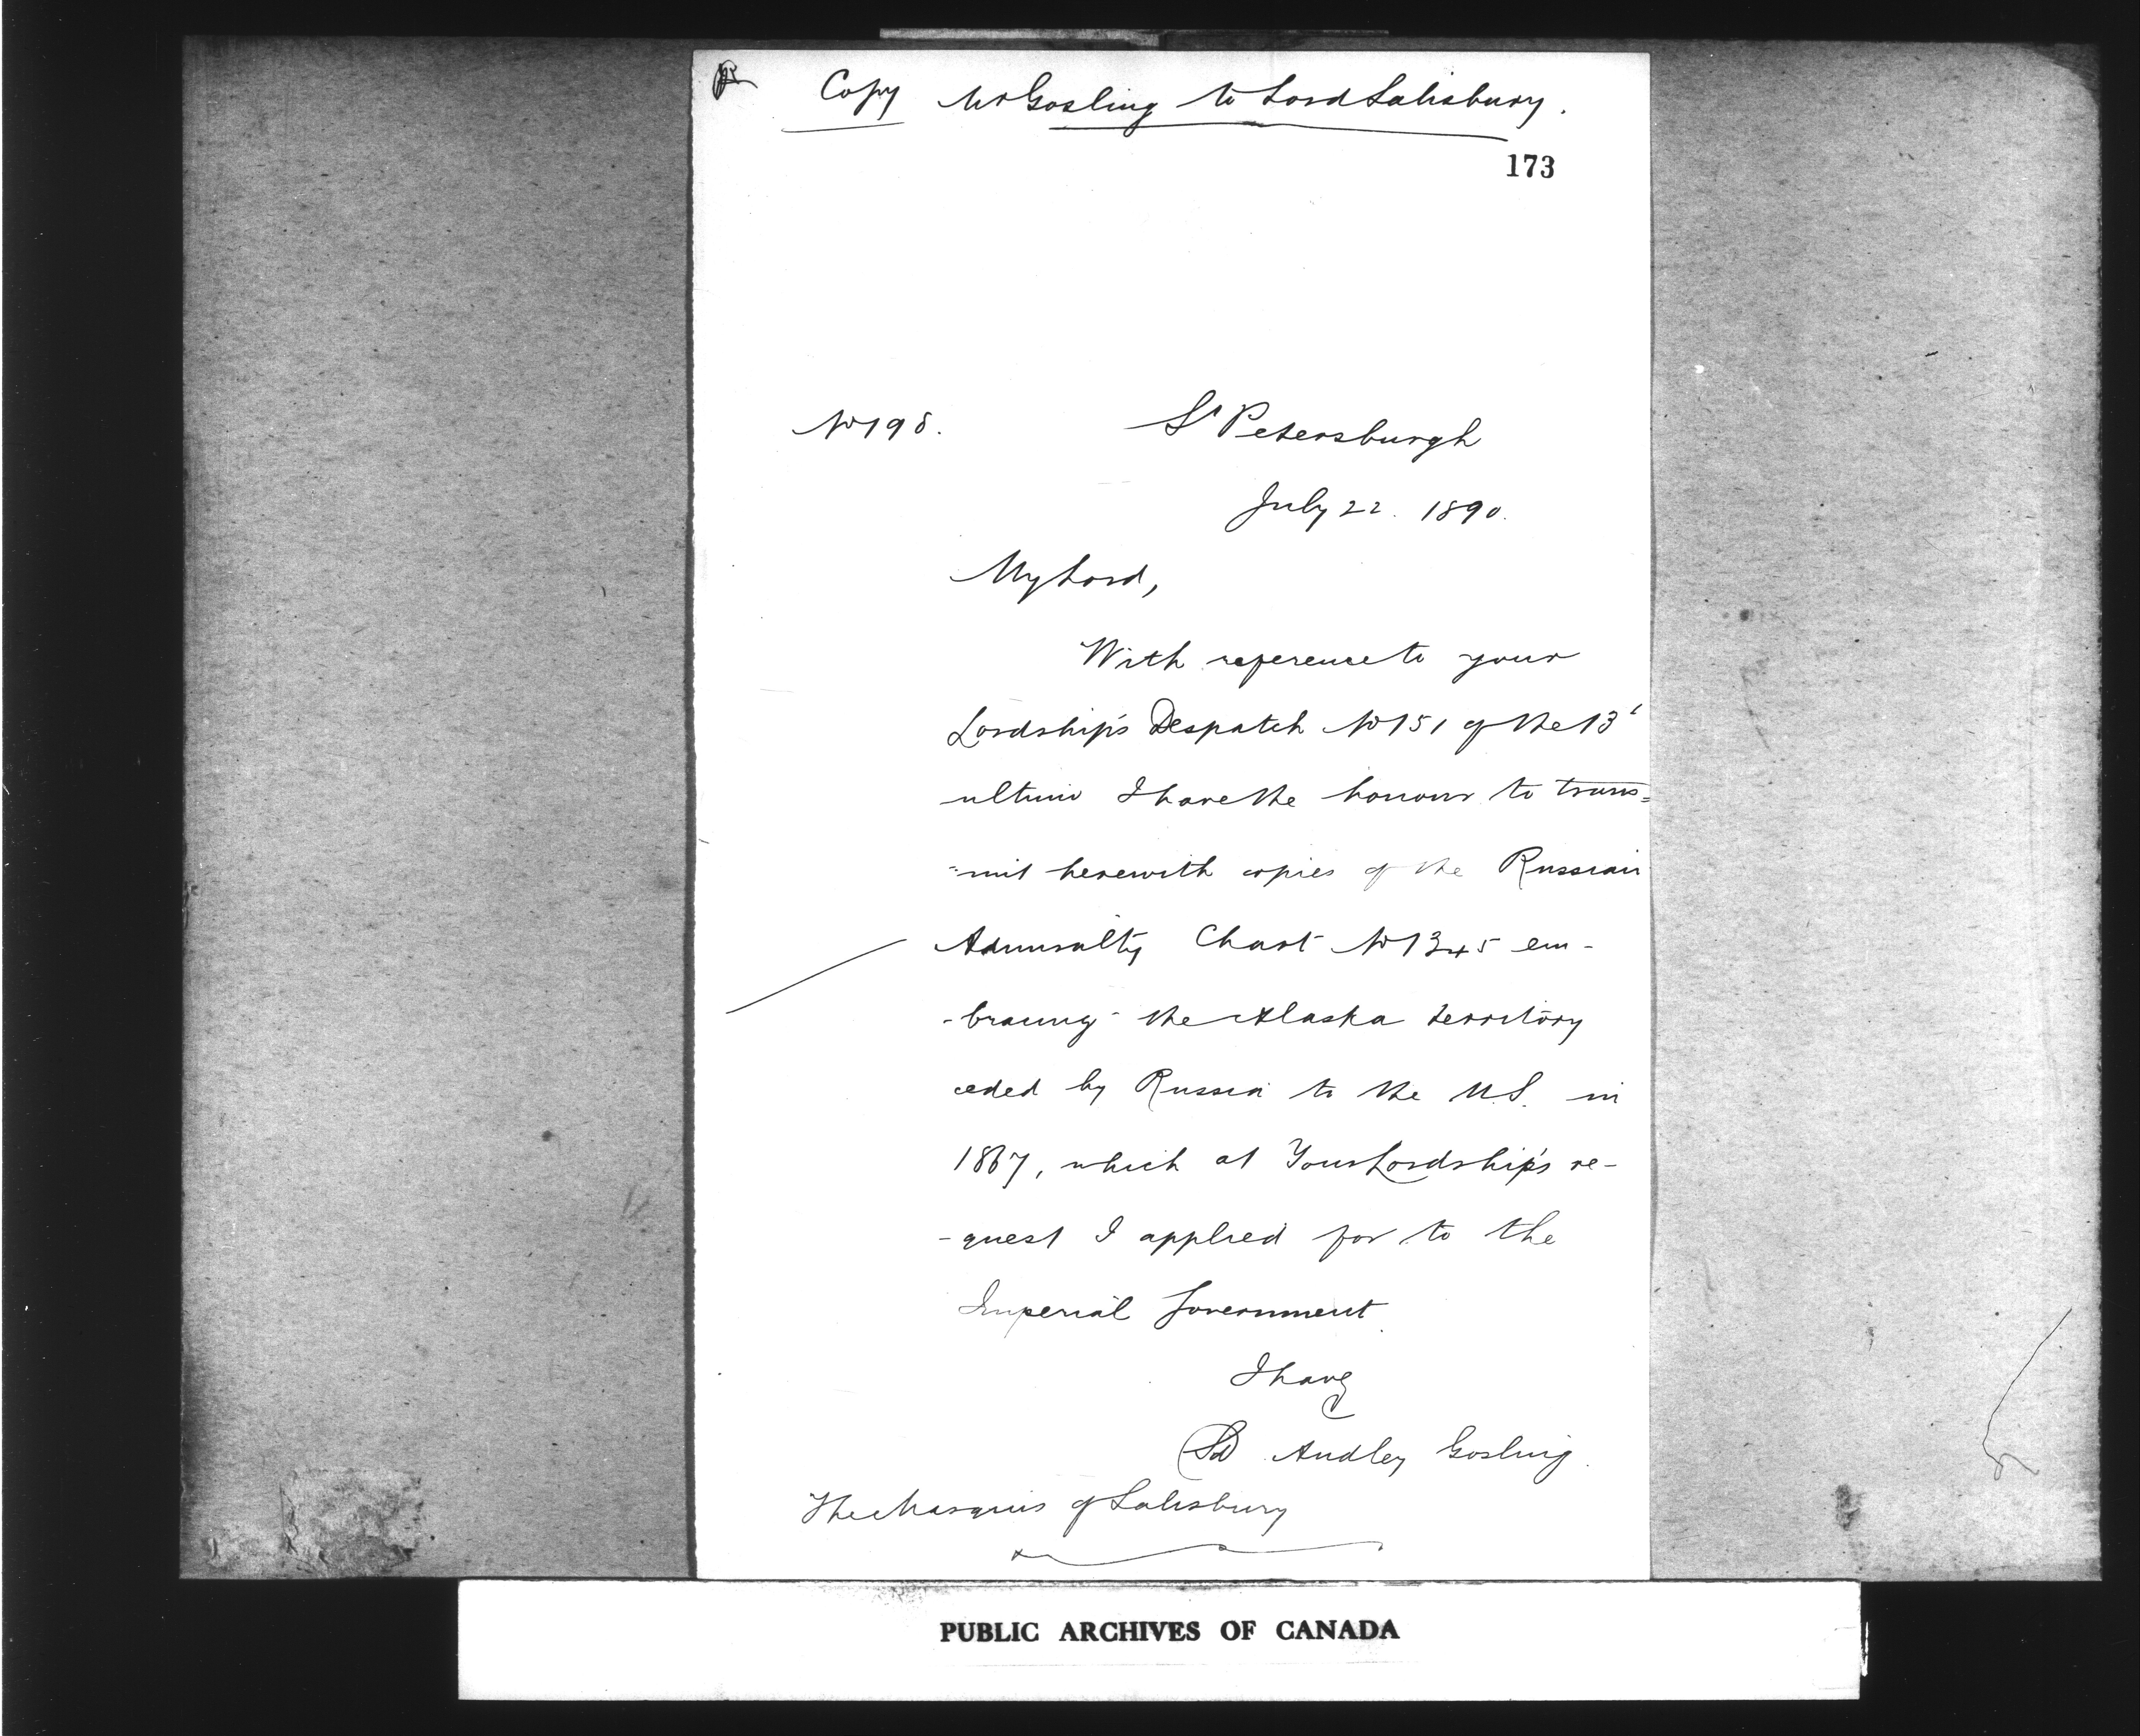 Copy Mr Gosling to Lord Salisbury.
173
No 198.
St Petersburgh
July 22. 1890.
My Lord,
With reference to your
Lordship's Despatch No 151 of the 13t
ultimo I have the honour to trans=
=mit herewith copies of the Russian
Admiralty Chart No 1345 em-
-bracing the Alaska territory
ceded by Russia to the U.S. in
1867, which at Your Lordship's re-
-quest I applied for to the
Imperial Government.
I have
(Sd Audley Gosling.
The Marquis of Salisbury
PUBLIC ARCHIVES OF CANADA